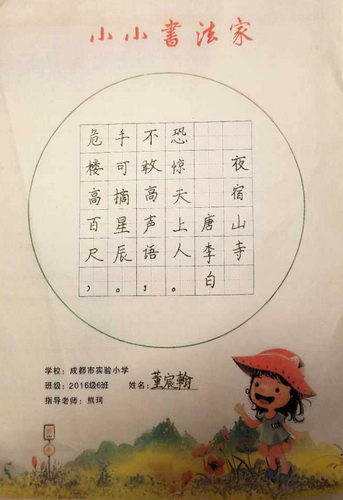 小小書法家
夜宿山寺
唐李白
危楼高百尺，
手可摘星辰。
不敢高声语，
恐惊天上人。
学校：成都市实验小学
班级：2016级6班 姓名：董宸翰
指导老师：熊珂